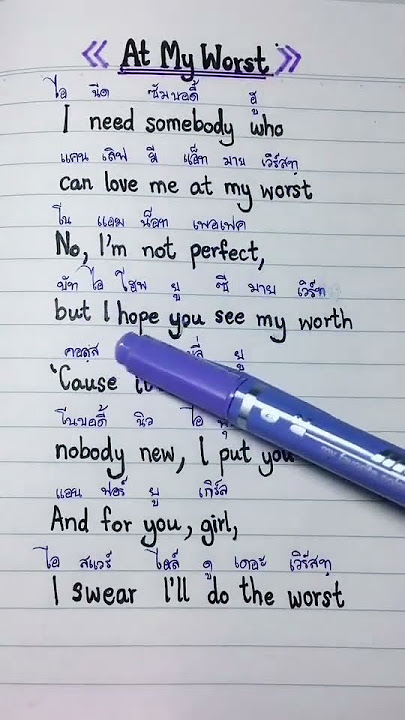 « At My Worst »
ไอ นีด ซัมบอดี้ ฮู
I need somebody who
แคน เลิฟ มี แอ็ท มาย เวิร์สทฺ
can love me at my worst
โน แอม น็อท เพอเฟค
No, I'm not perfect,
บัท ไอ โฮพ ยู ซี มาย เวิร์ท
but I hope you see my worth
คอสฺ ยู
'Cause
โนบอดี้ นิว ไอ
nobody new, I put you
แอน ฟอร์ ยู เกิร์ล
And for you, girl,
ไอ สแวร์ ไอล์ ดู เดอะ เวิร์สทฺ
I swear I'll do the worst